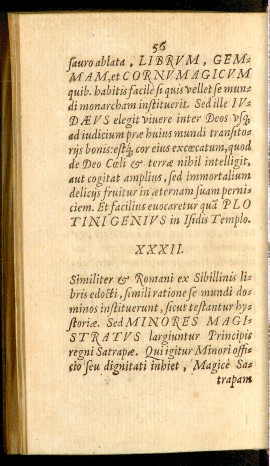 56
sauro ablata, LIBRVM, GEM-
MAM, et CORNVMAGICVM
quib. habitis facilè si quis vellet se mun-
di monarcham instituerit. Sed ille IV-
DÆVS elegit viuere inter Deos vsq;
ad iudicium præ huius mundi transito-
rijs bonis: estq; cor eius excœcatum, quod
de Deo Cœli & terræ nihil intelligit,
aut cogitat amplius, sed immortalium
delicijs fruitur in æternam suam perni-
ciem. Et facilius euocaretur quã PLO
TINI GENIVS in Isidis Templo.
XXXII.
Similiter & Romani ex Sibillinis li-
bris edocti, simili ratione se mundi do-
minos instituerunt, sicut testantur hy-
storiæ. Sed MINORES MAGI-
STRATVS largiuntur Principis
regni Satrapæ. Qui igitur Minori offi-
cio seu dignitati inhiet, Magicè Sa-
trapam